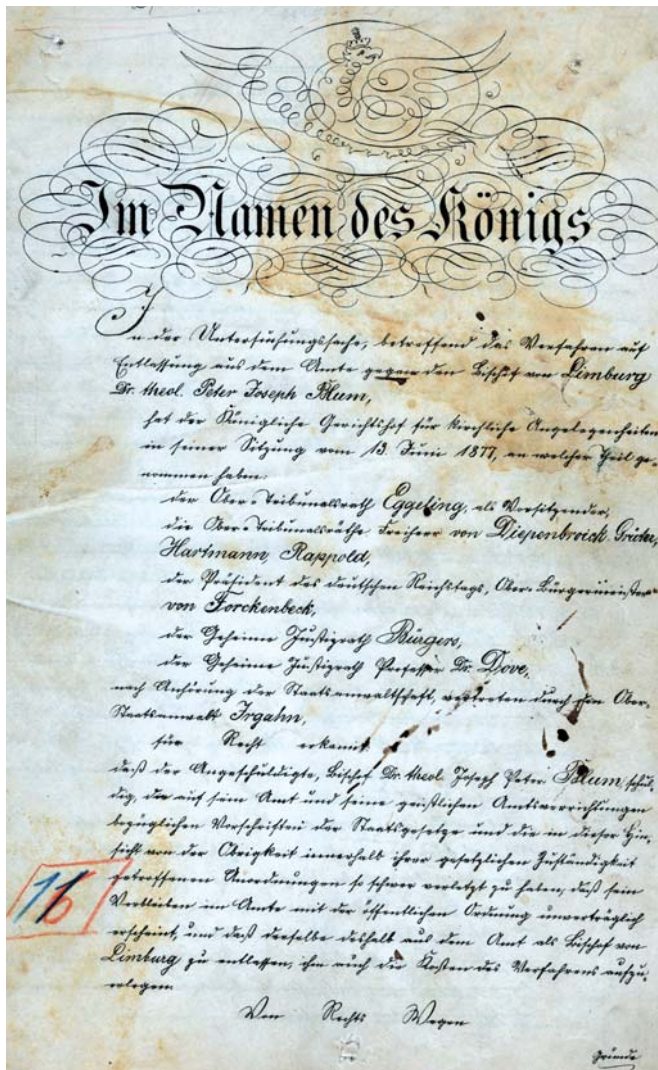 Im Namen des Königs
In der Untersuchungssache, betreffend das Verfahren auf
Entlassung aus dem Amte gegen den Bischof von Limburg
Dr. theol. Peter Joseph Blum,
hat der Königliche Gerichtshof für kirchliche Angelegenheiten
in seiner Sitzung vom 13. Juni 1877, an welcher Theil ge-
nommen haben:
der Ober-Tribunalsrath Eggeling, als Vorsitzender,
die Ober-Tribunalsräthe Freiherr von Diepenbroick-Grüter,
Hartmann, Rappold,
der Präsident des deutschen Reichstags, Ober-Bürgermeister
von Forckenbeck,
der Geheime Justizrath Bürgers,
der Geheime Justizrath Professor Dr. Dove,
nach Anhörung der Staatsanwaltschaft, vertreten durch den Ober-
Staatsanwalt Irgahn,
für Recht erkannt:
daß der Angeschuldigte, Bischof Dr. theol. Joseph Peter Blum schul-
dig, die auf sein Amt und seine geistlichen Amtsverrichtungen
bezüglichen Vorschriften der Staatsgesetze und die in dieser Hin-
sicht von der Obrigkeit innerhalb ihrer gesetzlichen Zuständigkeit
getroffenen Anordnungen so schwer verletzt zu haben, daß sein
Verbleiben im Amte mit der öffentlichen Ordnung unverträglich
erscheint, und daß derselbe deshalb aus dem Amt als Bischof von
Limburg zu entlassen, ihm auch die Kosten des Verfahrens aufzu-
erlegen.
Von Rechts Wegen
Gründe